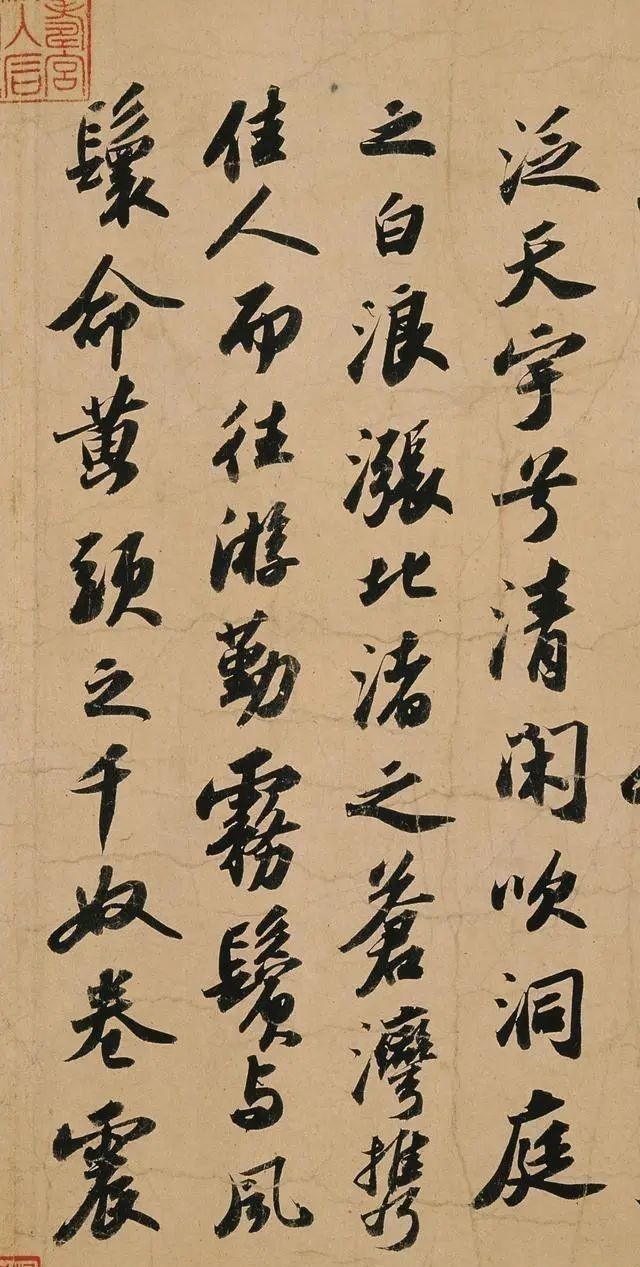 泛天宇兮清閑吹洞庭
之白浪漲北渚之蒼灣携
佳人而往游勤霧鬢与風
鬟命黄頭之千奴卷震